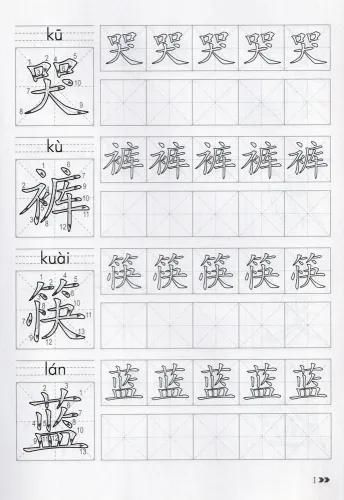 kū
哭 哭 哭 哭 哭 哭
kù
裤 裤 裤 裤 裤 裤
kuài
筷 筷 筷 筷 筷 筷
lán
蓝 蓝 蓝 蓝 蓝 蓝
1